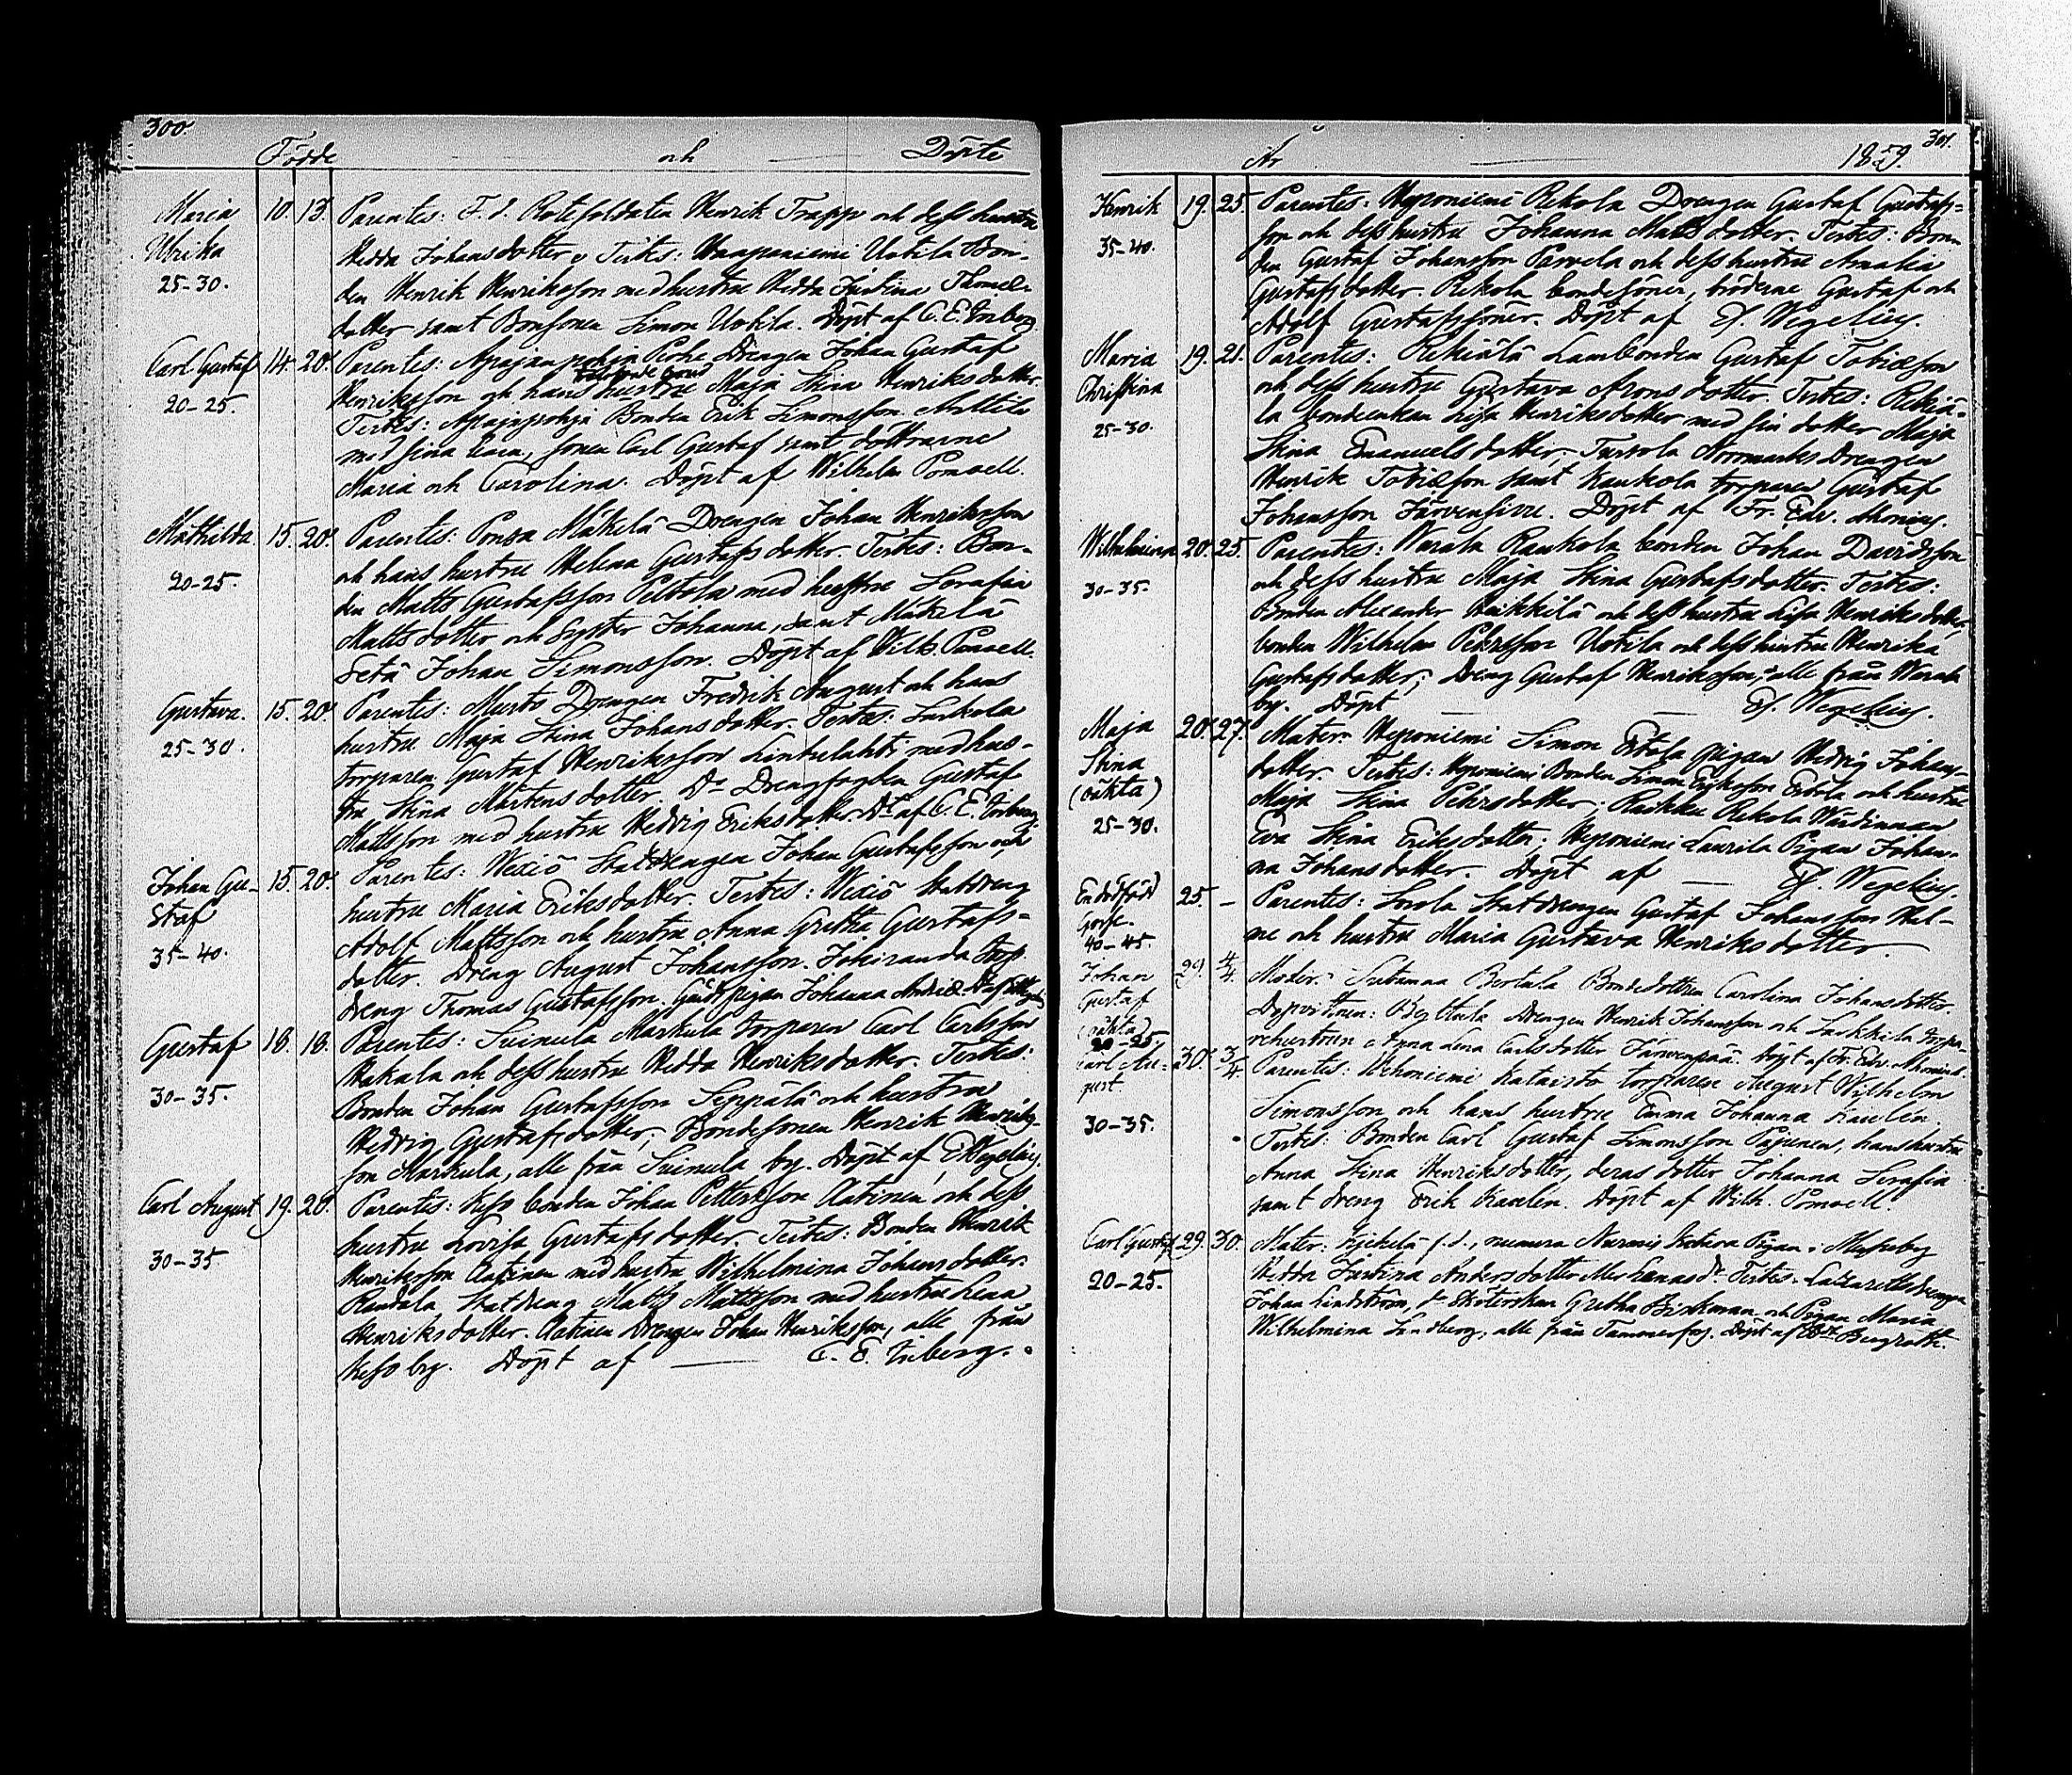 300.
Födde och Döpte
Maria
Ulrika
25-30.
10. 13. Parentes: F. d. Rotesoldaten Henrik Trapp och dess hustru
Hedda Johansdotter. Testes: Haapaniemi Uotila Bon-
den Henrik Henriksson med hustru Hedda Justina Thomæ
dotter samt Bonsonen Simon Uotila. Döpt af C. E. Inberg.
Carl Gustaf
20-25.
14. 20. Parentes: Apajanpohja Drengen Johan Gustaf
Henriksson och hans hustru Maja Stina Henriksdotter.
Testes: Apajapohja Bonden Erik Simonsson Anttila
med sina barn, sonen Carl Gustaf samt döttrarne
Maria och Carolina. Döpt af Wilhelm Ponvell.
Mathilda.
20-25.
15. 20. Parentes: Ponsa Mäkelä Drengen Johan Henriksson
och hans hustru Helena Gustafsdotter. Testes: Bon-
den Matts Gustafsson Peltola med hustru Serafia
Mattsdotter och Syster Johanna, samt Mäkelä
Setä Johan Simonsson. Döpt af Wilh. Ponvell.
Gustava.
25-30.
15. 20. Parentes: Musto Drengen Fredrik August och hans
hustru Maja Stina Johansdotter. Testes: Sarkola
torparen Gustaf Henriksson Lintulahti med hus-
tru Stina Mårtensdotter. Do Drengfogden Gustaf
Mattsson med hustru Hedvig Eriksdotter. Dt af C. E. Inberg.
Johan Gu-
staf
35-40.
15. 20. Parentes: Wexiö Statdrengen Johan Gustafsson och
hustru Maria Eriksdotter. Testes: Wexiö Statdreng
Adolf Mattsson och hustru Anna Gretha Gustafs-
dotter. Dreng August Johansson.
dreng Thomas Gustafsson. Johanna
Gustaf
30-35.
18. 18. Parentes: Suinula Markula torparen Carl Carlsson
Hakala och dess hustru Hedda Henriksdotter. Testes:
Bonden Johan Gustafsson Seppälä och hustru
Hedvig Gustafsdotter, Bondesonen Henrik Henriks-
son Markula, alla från Suinula by. Döpt af E. Wegelius.
Carl August
30-35
19. 20. Parentes: bonden Johan Pettersson Aatinen och dess
hustru Lovisa Gustafsdotter. Testes: Bonden Henrik
Henriksson Aatinen med hustru Wilhelmina Johansdotter.
Randala Statdreng Matts Mattsson med hustru Lena
Henriksdotter. Aatinen Drengen Johan Henriksson, alle från
by. Döpt af — C. E. Inberg.
301.
År 1859.
Henrik
35-40.
19. 25. Parentes: Heponiemi Rekola Drengen Gustaf Gustafs-
son och dess hustru Johanna Mattsdotter. Testes: Bon-
den Gustaf Johansson Parvela och dess hustru Amalia
Gustafsdotter. Rekola bondesöner, bröderne Gustaf och
Adolf Gustafssöner. Döpt af E. Wegelius.
Maria
Christina
25-30.
19. 21. Parentes: Rekiälä Lambonden Gustaf Tobiæson
och dess hustru Gustava Aronsdotter. Testes: Rekiä-
lä bondeenkan Lisa Henriksdotter med sin dotter Maja
Stina Emanuelsdotter, Drengen
Henrik Tobiæson samt Kaukola torparen Gustaf
Johansson Järvensivu. Döpt af Fr. Edv. Monius.
Wilhelmina
30-35.
20. 25. Parentes: Warala Raukola bonden Johan Davidsson
och dess hustru Maja Stina Gustafsdotter. Testes:
Bonden Alexander Heikkilä och dess hustru Lisa Henriksdotter,
bonden Wilhelm Pehrsson Uotila och dess hustru Henrika
Gustafsdotter; Dreng Gustaf Henriksson; alle från Warala
by. Döpt — E. Wegelius.
Maja
Stina
(oäkta)
25-30.
20. 27. Mater: Heponiemi Simon Erkola pigan Hedvig Johans-
dotter. Testes: Heponiemi Bonden Simon Eriksson Erkola och hustru
Maja Stina Pehrsdotter; Raikku Rekola Wärdinnan
Eva Stina Eriksdotter; Heponiemi Laurila Pigan Johan-
na Johansdotter. Döpt af — E. Wegelius.
En dödfödd
Gosse.
40-45.
25. – Parentes: Sorola Statdrengen Gustaf Johansson Hal-
me och hustru Maria Gustava Henriksdotter
Johan
Gustaf
(oäkta)
20-25.
29. 4/4 Moder: Bertula Bondedottren Carolina Johansdotter.
Dopvittnen: Drengen Henrik Johansson och torpa-
rehustrun Anna Lena Carlsdotter Järvenpää. Döpt af Fr. Edv.
Carl Au-
gust
30-35.
30. 3/4 Parentes: Wehoniemi Kataisto torparen August Wilhelm
Simonsson och hans hustru Emma Johanna Kaulén
Testes: Bonden Carl Gustaf Simonsson Pajunen, hans hustru
Anna Stina Henriksdotter, deras dotter Johanna Serafia
samt dreng Erik Kaulén. Döpt af Wilh. Ponvell.
Carl Gustaf
20-25.
29. 30. Mater: f.d., numera Pigan i Messuby
Hedda Justina Andersdotter Testes: Lazarettsdrengen
Johan Lindström, Sköterskan Gretha Björkman och Pigan Maria
Wilhelmina Lindberg, alle från Tammerfors. Döpt af Bergroth.